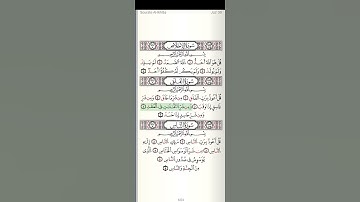 Juz' 30
سُورَةُ الإِخْلَاصِ
بِسْمِ اللَّهِ الرَّحْمَٰنِ الرَّحِيمِ
قُلْ هُوَ اللَّهُ أَحَدٌ ١ اللَّهُ الصَّمَدُ ٢ لَمْ يَلِدْ
وَلَمْ يُولَدْ ٣ وَلَمْ يَكُن لَّهُ كُفُوًا أَحَدٌ ٤
سُورَةُ الفَلَقِ
بِسْمِ اللَّهِ الرَّحْمَٰنِ الرَّحِيمِ
قُلْ أَعُوذُ بِرَبِّ الْفَلَقِ ١ مِن شَرِّ مَا خَلَقَ ٢ وَمِن شَرِّ
غَاسِقٍ إِذَا وَقَبَ ٣ وَمِن شَرِّ النَّفَّاثَاتِ فِي الْعُقَدِ ٤
وَمِن شَرِّ حَاسِدٍ إِذَا حَسَدَ ٥
سُورَةُ النَّاسِ
بِسْمِ اللَّهِ الرَّحْمَٰنِ الرَّحِيمِ
قُلْ أَعُوذُ بِرَبِّ النَّاسِ ١ مَلِكِ النَّاسِ ٢ إِلَٰهِ
النَّاسِ ٣ مِن شَرِّ الْوَسْوَاسِ الْخَنَّاسِ ٤ الَّذِي
يُوَسْوِسُ فِي صُدُورِ النَّاسِ ٥
مِنَ الْجِنَّةِ وَالنَّاسِ ٦
604